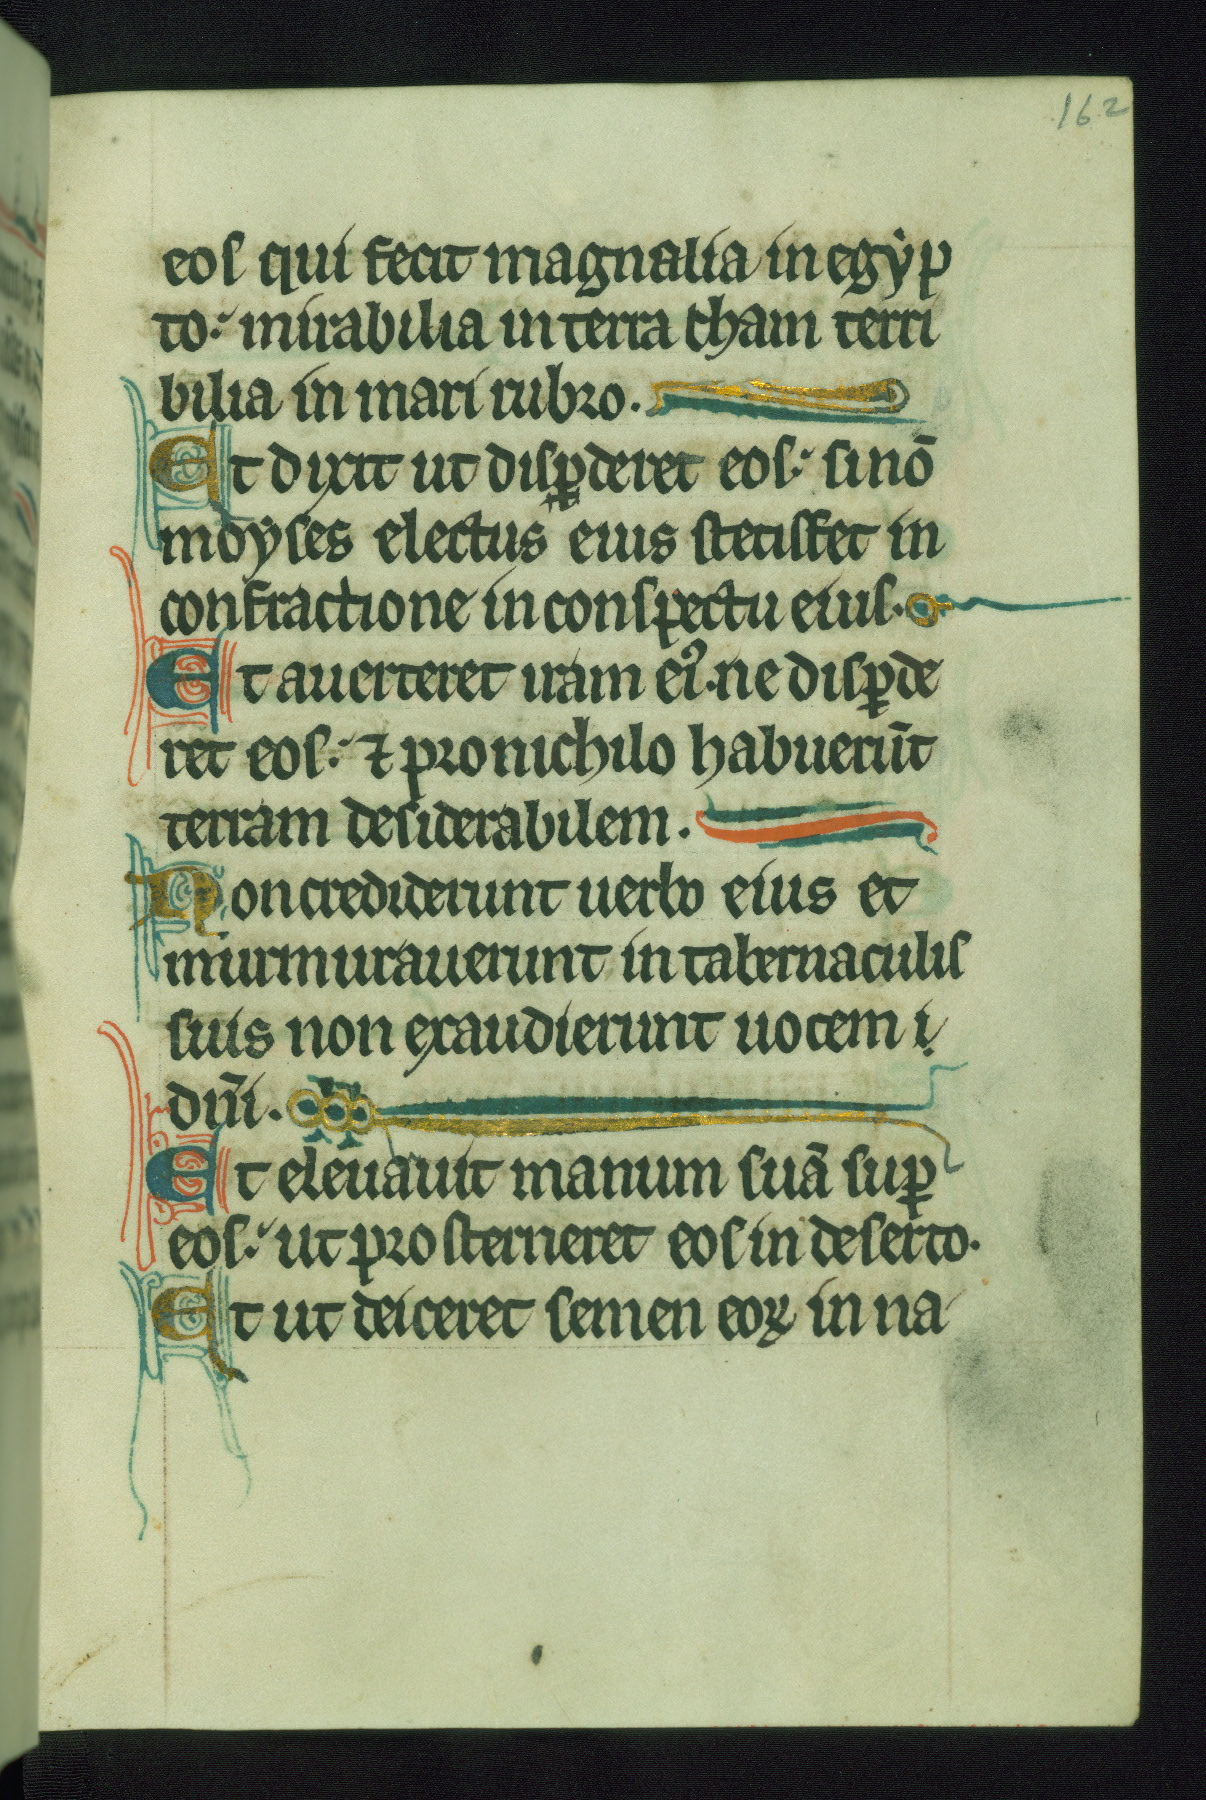 162
eos qui fecit magnalia in egẏp
to: mirabilia in terra cham terri
bilia in mari rubro.
Et dixit ut disꝑderet eos: si nō
moẏses electus eius stetisset in
confractione in conspectu eius.
Et auerteret iram eiꝰ. ne disꝑde
ret eos: ⁊ pro nichilo habuerūt
terram desiderabilem.
Non crediderunt uerbo eius et
murmurauerunt in tabernaculis
suis non exaudierunt uocem
dn̄i.
Et eleuauit manum suā suꝑ
eos: ut prosterneret eos in deserto.
Et ut deiceret semen eoꝝ in na